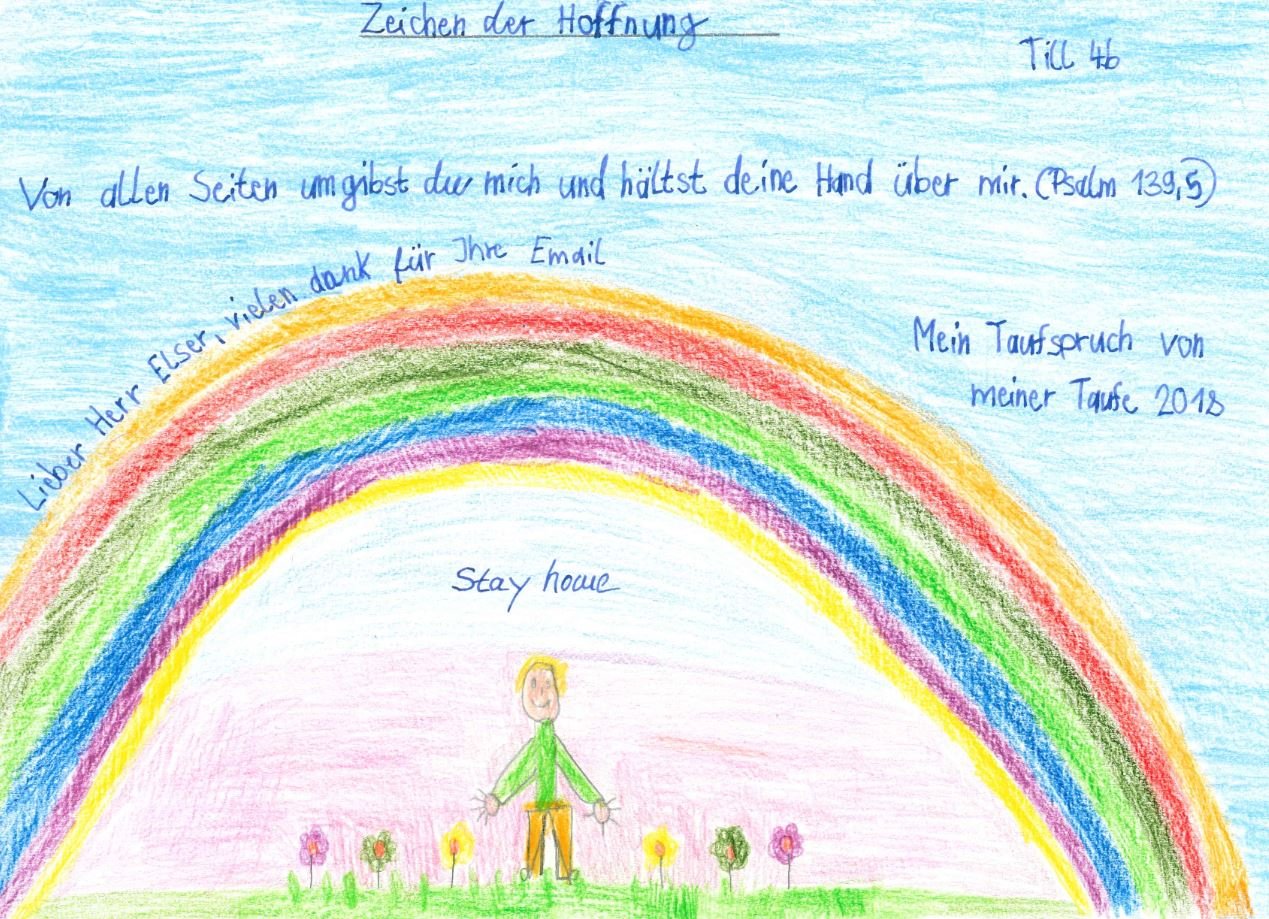 Zeichen der Hoffnung
Till 4b
Von allen Seiten umgibst du mich und hältst deine Hand über mir. (Psalm 139,5)
Lieber Herr Elser, vielen dank für Ihre Email
Mein Taufspruch von
meiner Taufe 2018
Stay home